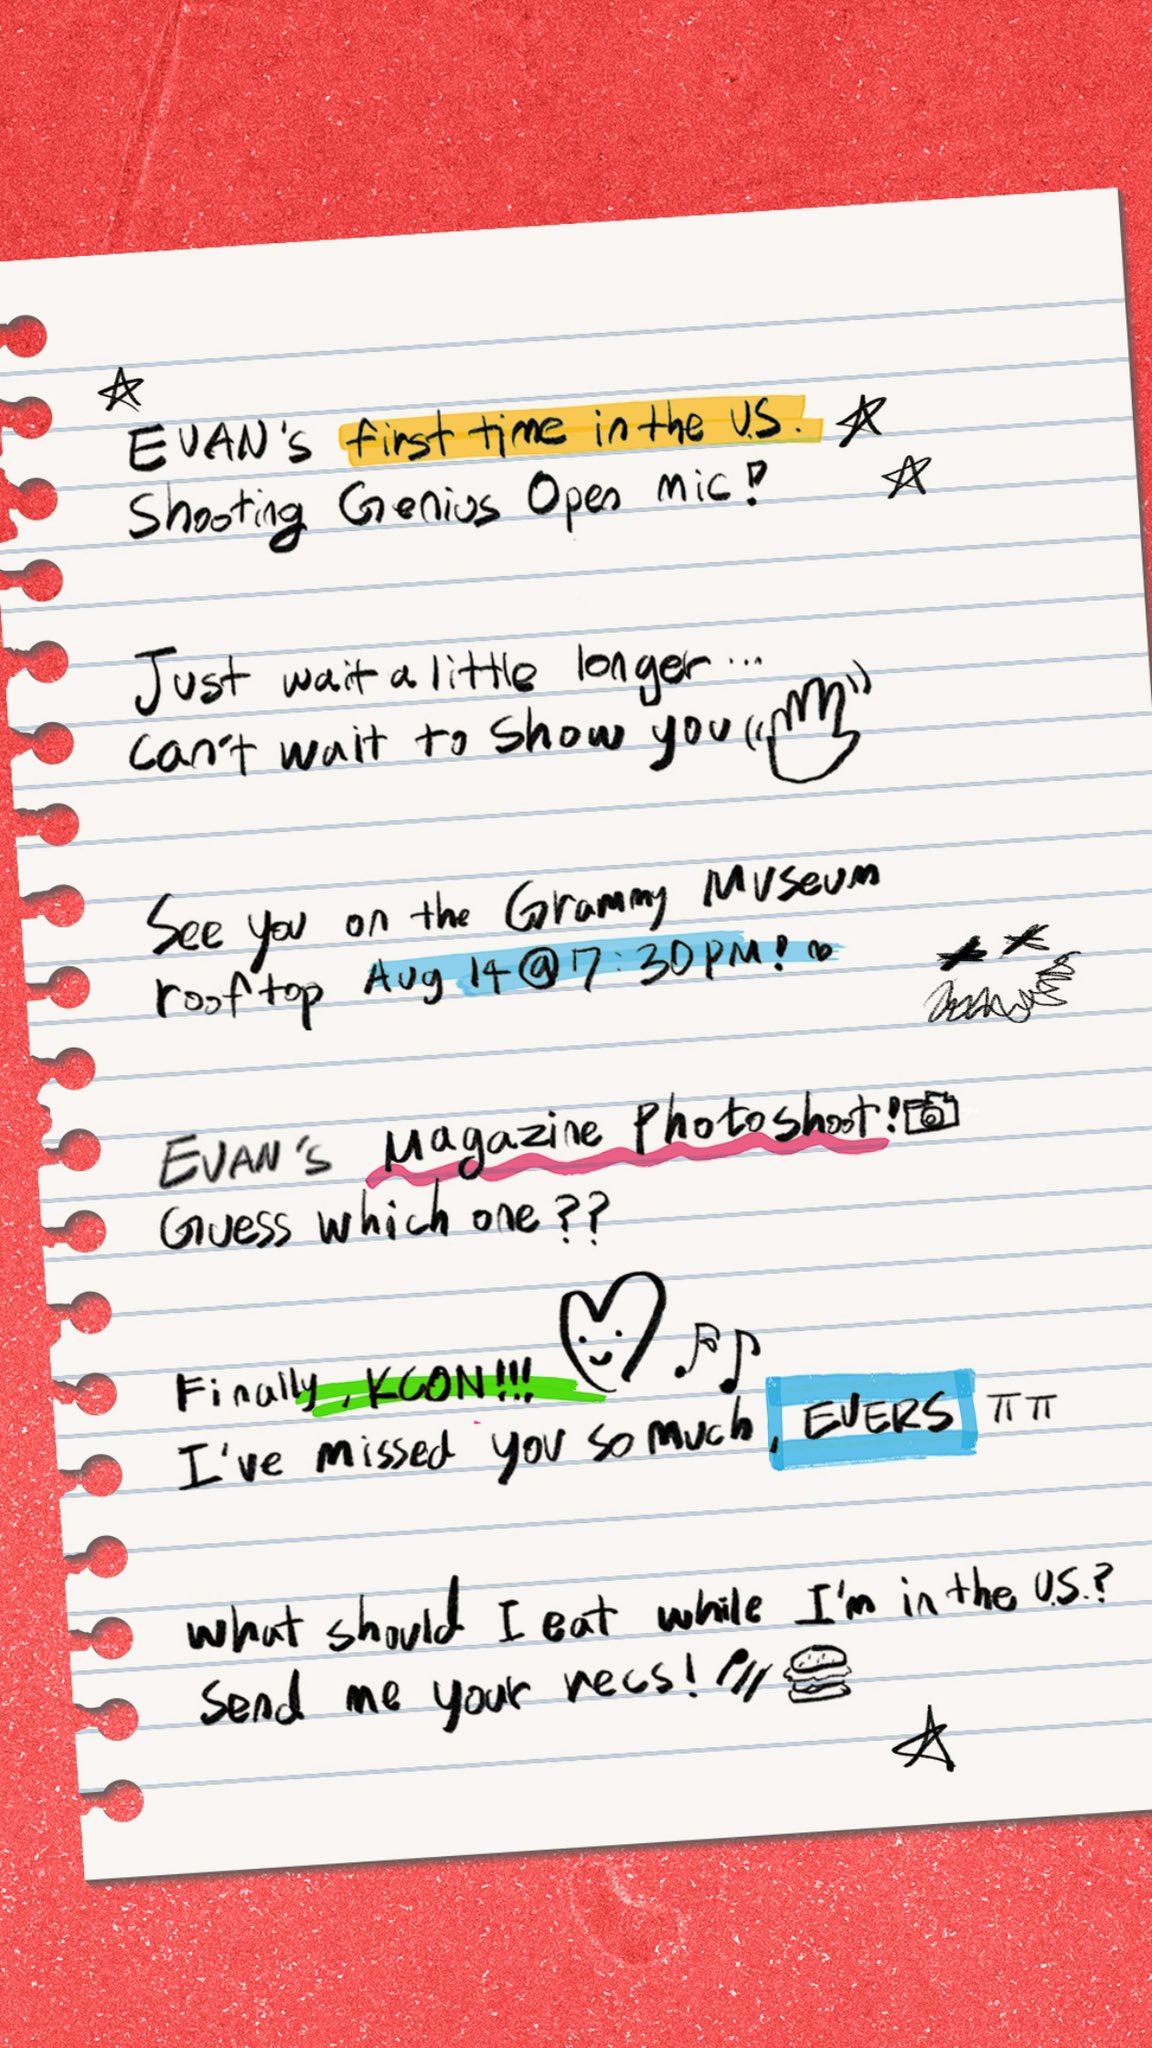 EVAN's first time in the U.S.
Shooting Genius Open mic!
Just wait a little longer...
can't wait to show you
See you on the Grammy Museum
rooftop Aug 14@7:30PM!~
EVAN's Magazine Photoshoot!
Guess which one??
Finally, KCON!!!
I've missed you so much, EVERS ㅠㅠ
What should I eat while I'm in the U.S.?
Send me your recs!